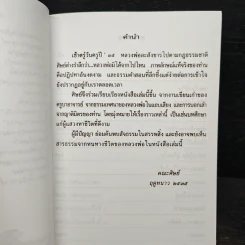 คำนำ
เช้าตรู่วันครูปี ๓๕ หลวงพ่อละสังขารไปตามกฎธรรมชาติ
ศิษย์ต่างรำลึกว่า...หลวงพ่อมิได้จากไปไหน ภาพลักษณ์แท้จริงของท่าน
คือปฏิปทาอันงดงาม และธรรมคำสอนที่ลึกซึ้งแต่ง่ายต่อการเข้าใจ
ยังปรากฏอยู่กับเราตลอดเวลา
ศิษย์จึงร่วมเรียบเรียงหนังสือเล่มนี้ขึ้น จากงานเขียนเก่าของ
ครูบาอาจารย์ จากธรรมเทศนาของหลวงพ่อในแถบเสียง และการบอกเล่า
จากญาติมิตรของท่าน โดยมุ่งหมายให้เรื่องราวเหล่านี้ เป็นเช่นบทศึกษา
แก่ผู้แสวงหาชีวิตที่ดีงาม
ผู้มีปัญญา ย่อมค้นพบสัจธรรมในสรรพสิ่ง และยังอาจพบเห็น
สาระธรรมจากหนทางชีวิตของหลวงพ่อในหนังสือเล่มนี้
คณะศิษย์
ฤดูหนาว ๒๕๓๕